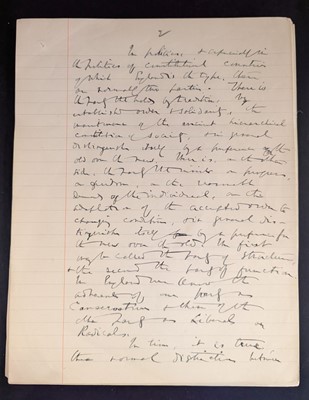 2
In politics, & especially in
the politics of constitutional countries
of which England is the type, there
are normally two parties. There is
the party that holds by tradition, by
established order & solidarity, the
maintenance of the ancient hierarchical
constitution of society, & in general
distinguishes itself by a preference for the
old over the new. There is, on the other
side, the party that insists on progress,
on freedom, on the reasonable
demands of the individual, on the
adaptation of the accepted order to
changing conditions, & in general dis-
tinguishes itself by a preference for
the new over the old. The first
may be called the party of structure
& the second the party of function.
In England we know the
adherents of one party as
Conservatives & those of the
other party as Liberals or
Radicals.
In time, it is true
this normal distinction between